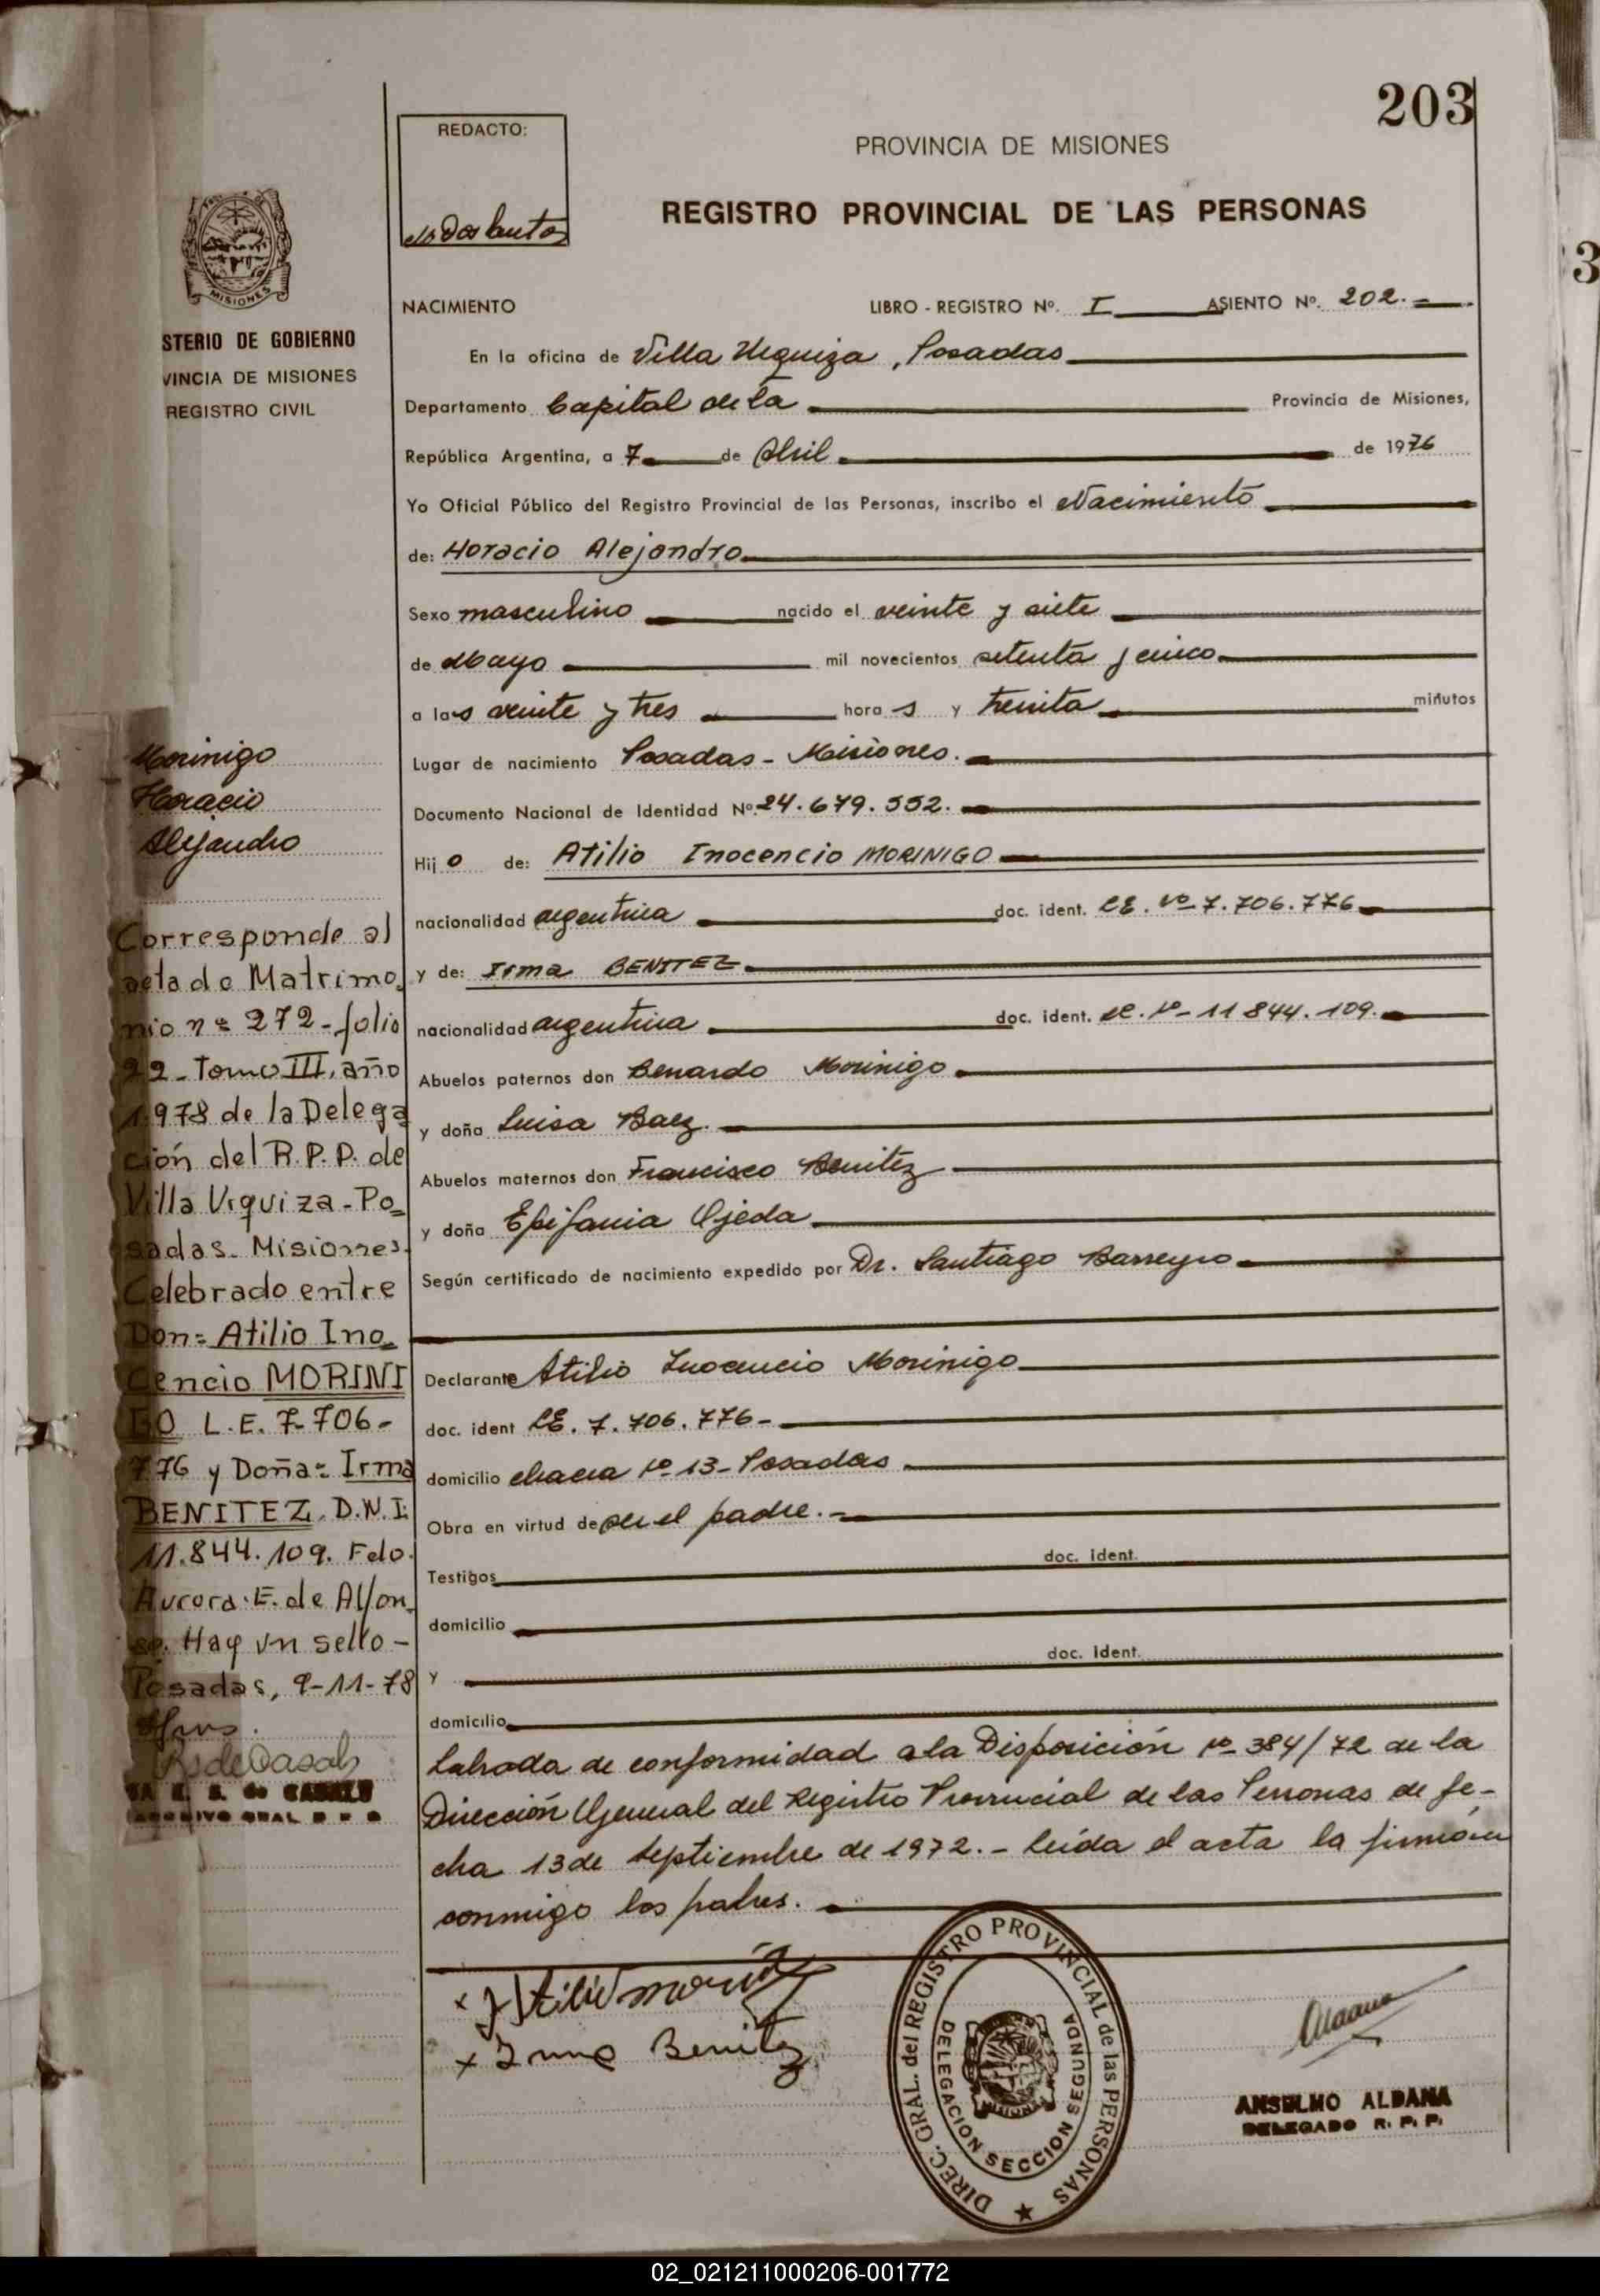 203
REDACTO:
PROVINCIA DE MISIONES
REGISTRO PROVINCIAL DE LAS PERSONAS
3
MISIONES
STERIO DE GOBIERNO
VINCIA DE MISIONES
REGISTRO CIVIL
NACIMIENTO LIBRO - REGISTRO Nº. I ASIENTO Nº. 202.
En la oficina de Villa Urquiza, Posadas
Departamento Capital de la Provincia de Misiones,
República Argentina, a 7 de Abril de 1976
Yo Oficial Público del Registro Provincial de las Personas, inscribo el Nacimiento
de: Horacio Alejandro
Sexo masculino nacido el veinte y siete
de Mayo mil novecientos setenta y cinco
a las veinte y tres horas y treinta minutos
Lugar de nacimiento Posadas - Misiones.
Documento Nacional de Identidad Nº 24.679.552.
Hijo de: Atilio Inocencio MORINIGO
nacionalidad argentina doc. ident. LE. Nº 7.706.776
y de: Irma BENITEZ
nacionalidad argentina doc. ident. Nº 11844.109.
Abuelos paternos don Bernardo Morinigo
y doña Luisa Baez.
Abuelos maternos don Francisco Benitez
y doña Epifania Ojeda
Según certificado de nacimiento expedido por Dr. Santiago Barreyro
Declarante Atilio Inocencio Morinigo
doc. ident LE. 7.706.776-
domicilio chacra Nº 13 - Posadas
Obra en virtud de ser el padre.
Testigos doc. ident.
domicilio
y doc. ident.
domicilio
Labrada de conformidad a la Disposición Nº 384/72 de la
Dirección General del Registro Provincial de las Personas de fe-
cha 13 de Septiembre de 1972. - Leída el acta la firman
conmigo los padres.
Morinigo
Horacio
Alejandro
Corresponde al
acta de Matrimo
nio nº 272 - folio
22 - Tomo III, año
1.978 de la Delega
ción del R.P.P. de
Villa Urquiza - Po
sadas - Misiones.
Celebrado entre
Don= Atilio Ino
cencio MORINI
GO L.E. 7-706-
776 y Doña= Irma
BENITEZ. D.N.I:
11.844.109. Fdo.
Aurora E. de Alfon
so. Hay un sello -
Posadas, 9-11-78
x Atilio
x Irma Benitez
DIREC. GRAL. del REGISTRO PROVINCIAL de las PERSONAS
DELEGACION SECCION SEGUNDA
MISIONES
ANSELMO ALDANA
DELEGADO R. P. P.
02_021211000206-001772